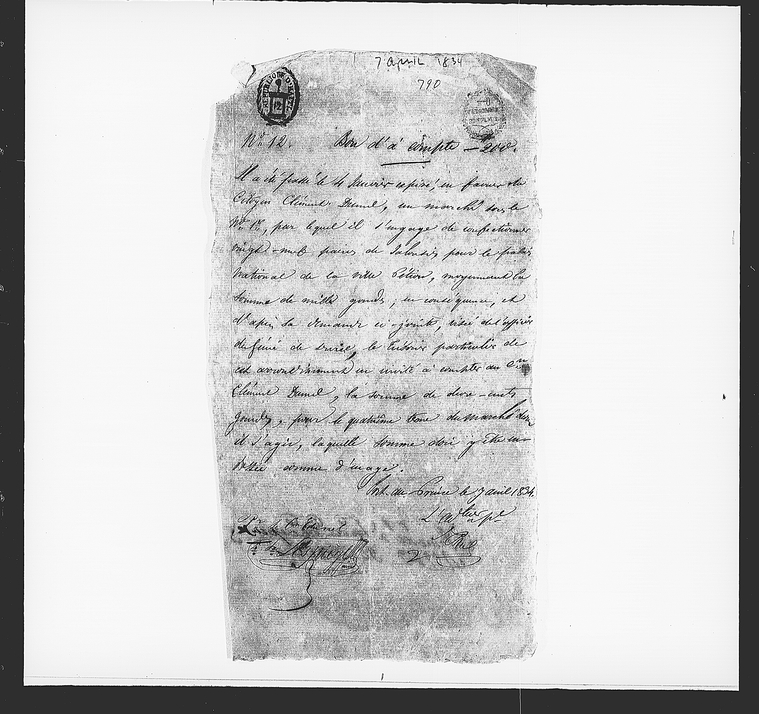 7 april 1834
790
REPUBLIQUE D'HAYTI
N.º 12. Bon d'à compte — 200.
Il a été passé le 4 Janvier expiré, en faveur du
Citoyen Clément Dunel, un marché sous le
Nº 12, par lequel il s'engage de confectionner
vingt-neuf paires de Jalousies pour le palais
national de la ville Pétion, moyennant la
somme de mille gourdes, en conséquence, et
d'après sa demande ci-jointe, visée de l'officier
du génie de service, le Trésorier particulier de
cet arrondissement est invité à compter au Cen
Clément Dunel, la somme de deux-cents
gourdes, pour le quatrième terme du marché dont
il s'agit, laquelle somme doit y être en-
dossée comme d'usage.
Port-au-Prince le 7 avril 1834.
L'adteur pal